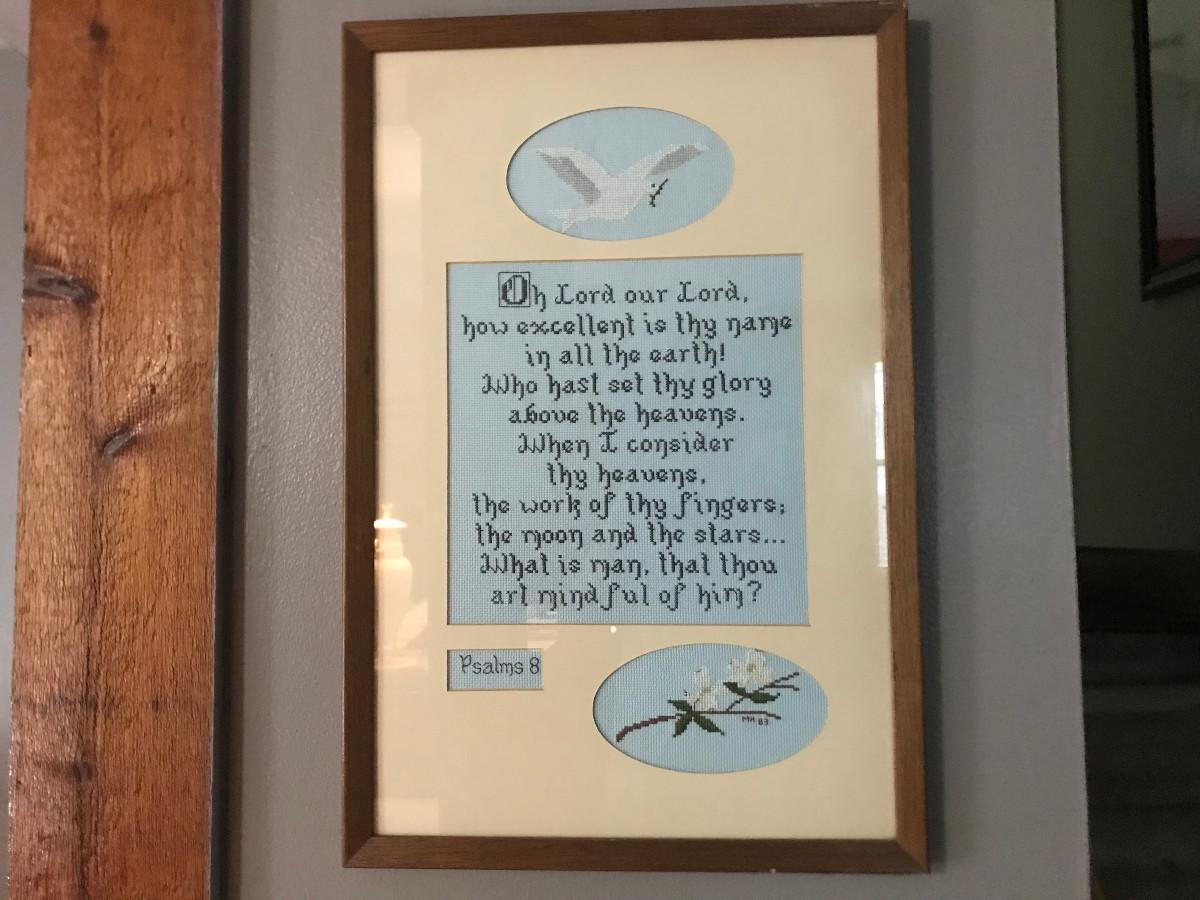 Oh Lord our Lord,
how excellent is thy name
in all the earth!
Who hast set thy glory
above the heavens.
When I consider
thy heavens,
the work of thy fingers;
the moon and the stars...
What is man, that thou
art mindful of him?
Psalms 8
MH 83